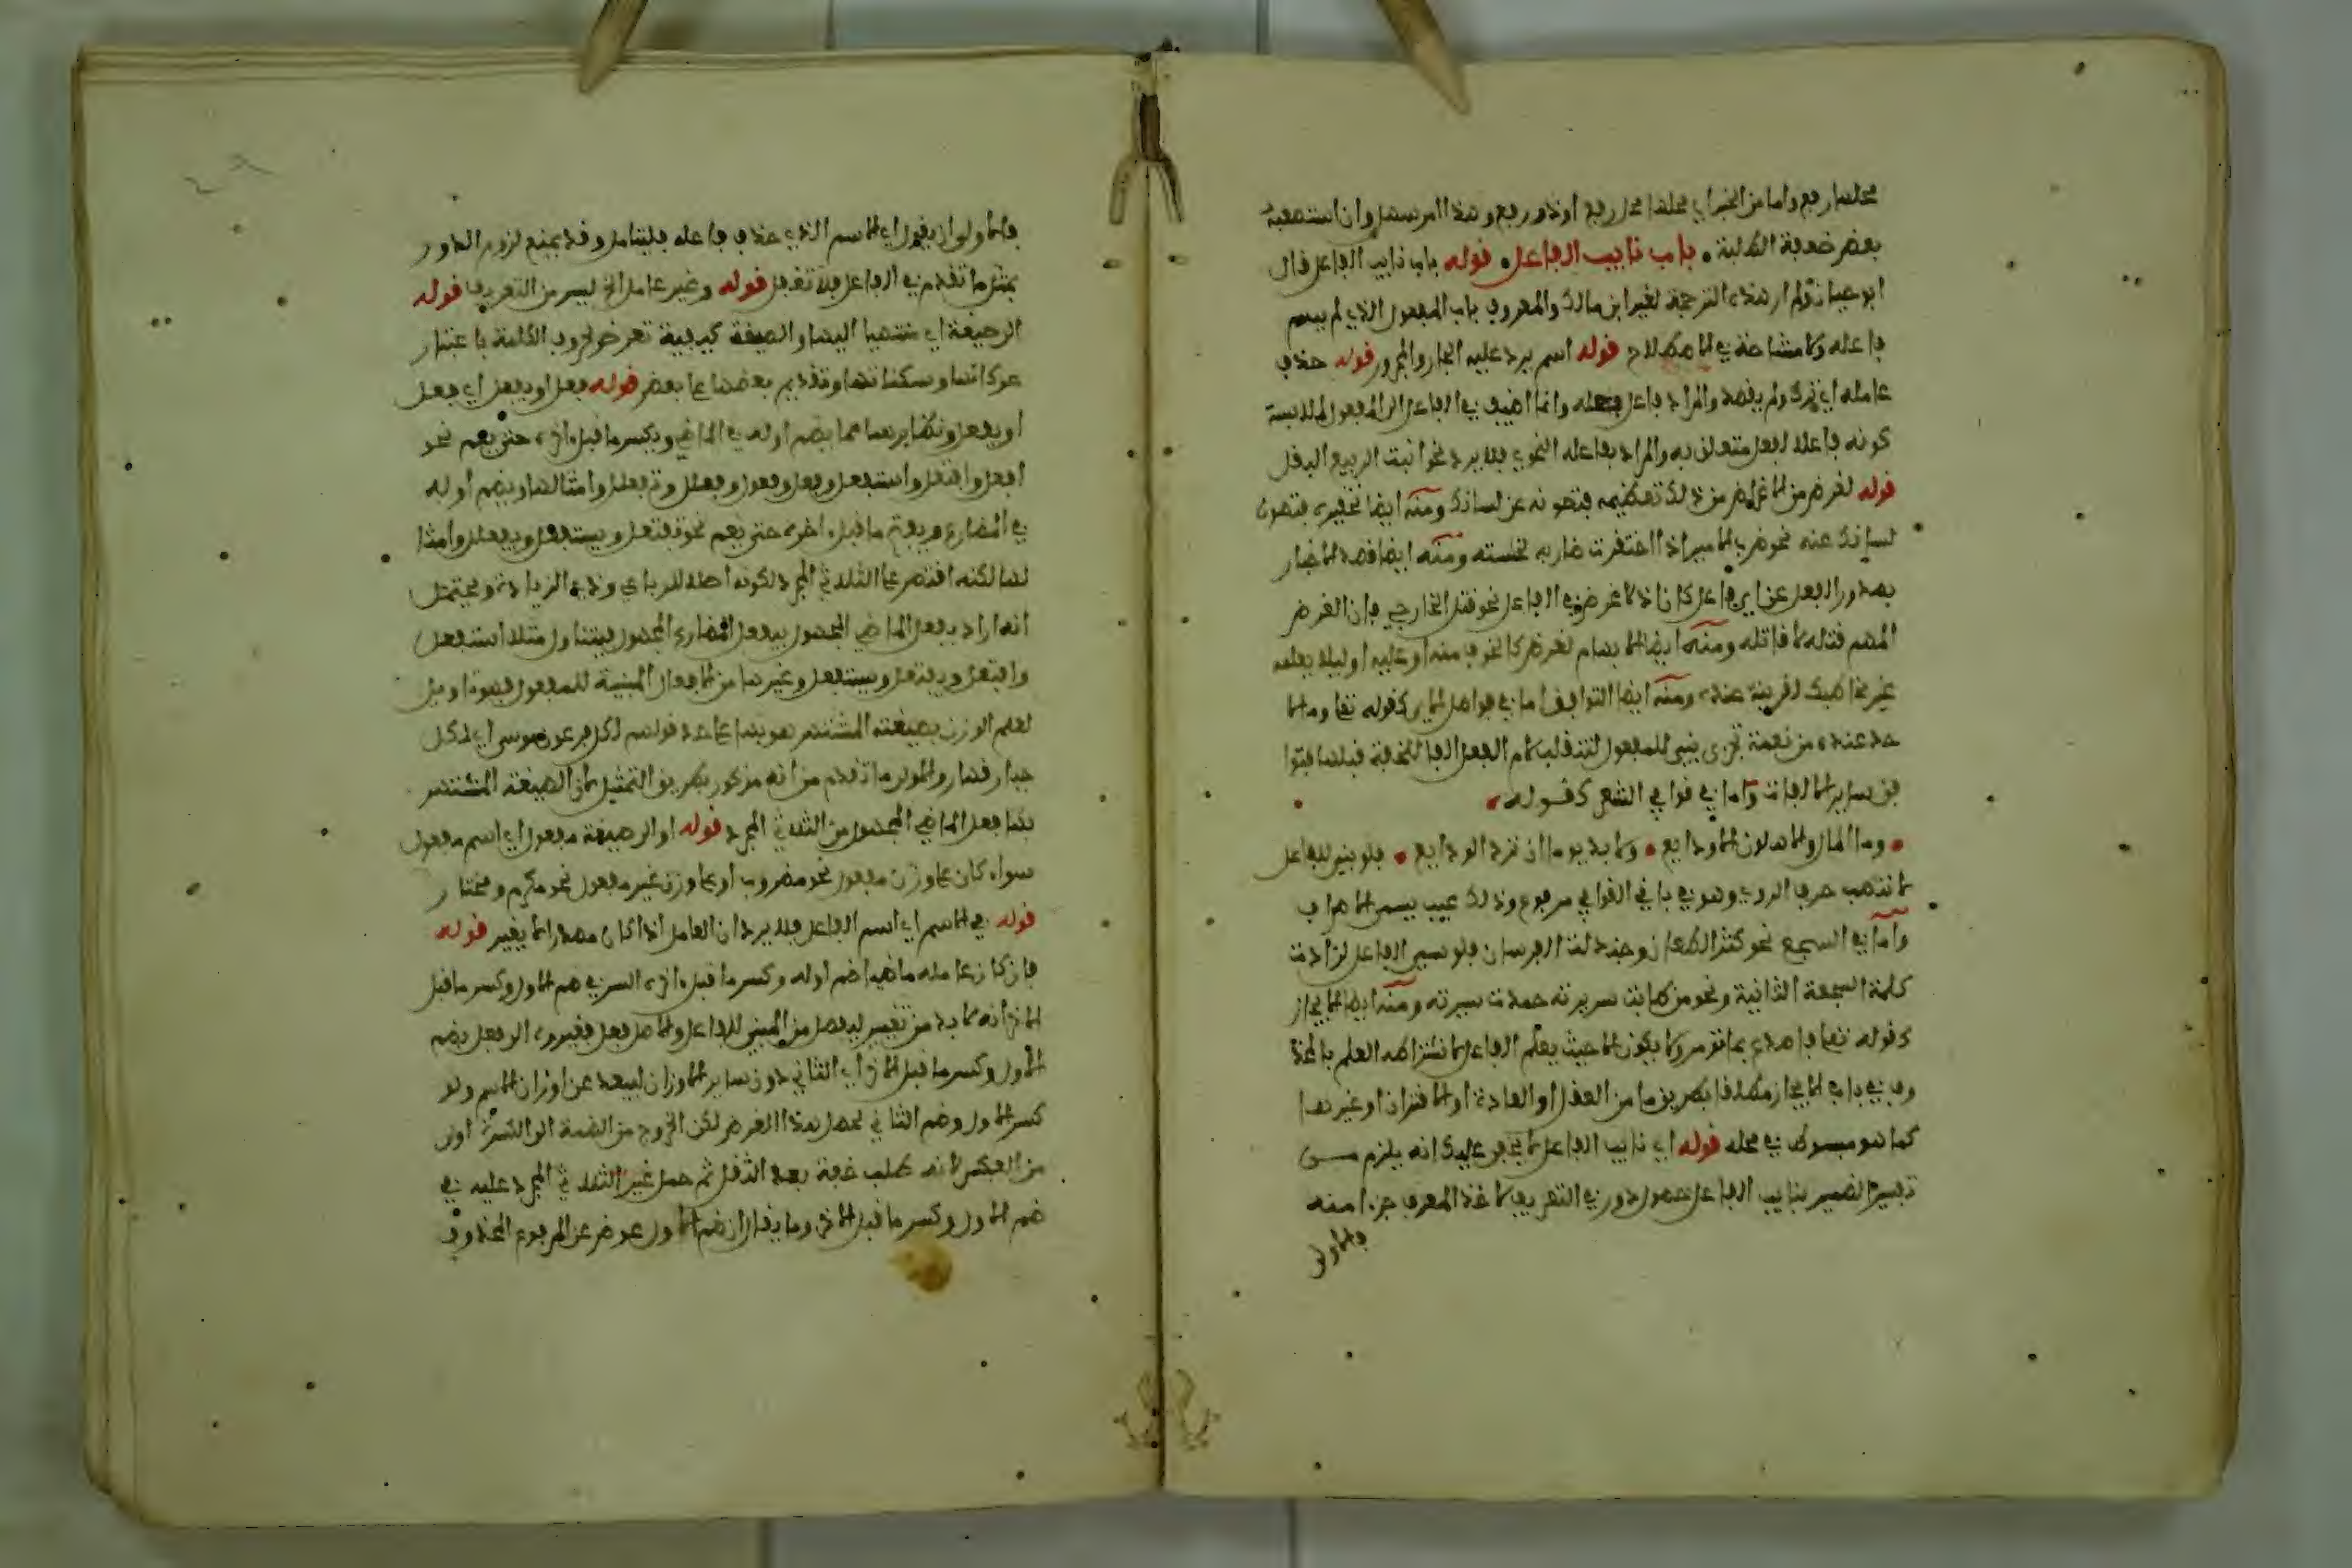 محلها رفع واما من الخبر اي محلها محل رفع او ذو رفع وهذا امر سهل وان استصعبه
بعض ضعفة الطلبة • باب نايب الفاعل • قوله باب نايب الفاعل قال
ابو حيان لم ار هذه الترجمة لغير ابن مالك والمعروف باب المفعول الذي لم يسم
فاعله ولا مشاحة في الاصطلاح قوله اسم يرد عليه الجار والمجرور قوله حذف
عامله اي ترك ولم يقصد والمراد فاعل فعله وانما اضيف في الفاعل الى المفعول لملابسة
كونه فاعلا لفعل متعلق به والمراد بفاعله النحوي فلا يرد نحو انبت الربيع البقل
قوله لغرض من الاغراض من ذلك تعظيمه فتصونه عن لسانك ومنه ايضا تحقيره فتصون
لسانك عنه نحو ضرب الامير اذا احتقرت ضاربه لخسته ومنه ايضا قصد الاخبار
بصدور الفعل عن اي فاعل كان اذ لا غرض في الفاعل نحو قتل الخارجي فان الغرض
المهم قتله لا قاتله ومنه ايضا الابهام لغرض كالخوف منه او عليه او ليلا يعلمه
غير مخاطبك لقرينة عنده ومنه ايضا التوافق اما في فواصل الاي كقوله تعلى وما لا
حد عنده من نعمة تجزى بني للمفعول لتنقلب لام الفعل الفا للفتحة قبلها فتوا
فق ساير الالفات واما في قوافي الشعر كقوله
• وما المال والاهلون الا ودايع • ولا بد يوما ان ترد الودايع • فلو بني للفاعل
لانتصب حرف الروي وهو في باقي القوافي مرفوع وذلك عيب يسمى الاصراف
واما في السجع نحو كثر الطعان وجندلت الفرسان فلو سمي الفاعل لزادت
كلمة السجعة الثانية ونحو من طابت سريرته حمدت سيرته ومنه ايضا الايجاز
كقوله تعلى فاصدع بما تؤمر ولا يكون الا حيث يعلم الفاعل لاشتراط العلم بالمحذ
وف في باب الايجاز مطلقا بطريق ما من العقل او العادة او الاقتران او غيرها
كما هو مبسوط في محله قوله اي نايب الفاعل لا يخفى عليك انه يلزم من
تفسير الضمير بنايب الفاعل حصول دور في التعريف لاخذ المعرف جزءا منه
فالاولى
فالاولى ان يقول اي الاسم الذي حذف فاعله فليتامل وقد يمنع لزوم الدور
بمثل ما تقدم في الفاعل فلا تغفل قوله وغير عامله الخ ليس من التعريف قوله
الى صيغة اي منتهيا اليها والصيغة كيفية تعرض لحروف الكلمة باعتبار
حركاتها وسكناتها وتقديم بعضها على بعض قوله فعل او يفعل اي فعل
او يفعل ونظايرهما مما يضم اوله في الماضي ويكسر ما قبل اخره حتى يعم نحو
افعل وافتعل واستفعل وفعل وفوعل وفعلل وتفعلل وامثالها ويضم اوله
في المضارع ويفتح ما قبل اخره حتى يعم نحو يفتعل ويستفعل ويفعلل وامثا
لها لكنه اقتصر على الثلاثي المجرد لكونه اصلا للرباعي وذي الزيادة ويحتمل
انه اراد بفعل الماضي المجهول بيفعل المضارع المجهول فيتناول مثل استفعل
وافتعل ويفتعل ويستفعل وغيرها من الافعال المبنية للمفعول فهو تاويل
لعلم الوزن بصيغته المشتهر هو بها على حد قولهم لكل فرعون موسى اي لكل
جبار قهار والاولى ما تقدم من انه مذكور بطريق التمثيل لان الصيغة المشتهر
بها فعل الماضي المجهول من الثلاثي المجرد قوله او الى صيغة مفعول اي اسم مفعول
سواء كان على وزن مفعول نحو مضروب او على وزن غير مفعول نحو مكرم ومختار
قوله في الاسم اي اسم الفاعل فلا يرد ان العامل اذا كان مصدرا لا يغير قوله
فان كان عامله ماضيا ضم اوله وكسر ما قبل اخره السر في ضم الاول وكسر ما قبل
الاخر انه لا بد من تغيير ليفصل من المبني للفاعل والاصل فعل فغيروه الى فعل بضم
الاول وكسر ما قبل الاخر اي الثاني دون ساير الاوزان ليبعد عن اوزان الاسم ولو
كسر الاول وضم الثاني لحصل هذا الغرض لكن الخروج من الضمة الى الكسرة اولى
من العكس لانه طلب خفة بعد الثقل ثم حمل غير الثلاثي المجرد عليه في
ضم الاول وكسر ما قبل الاخر وما يقال ان ضم الاول عوض عن المرفوع المحذوف